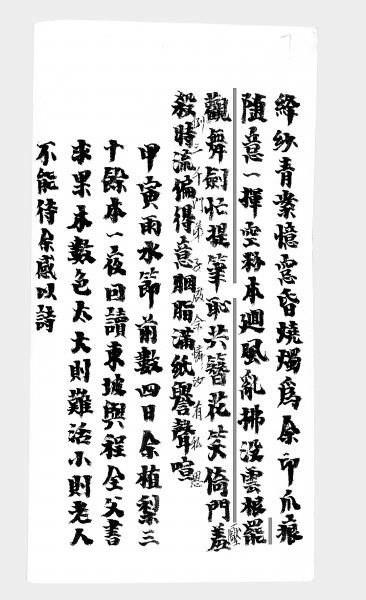 絳紗青案憶窓昏燒燭爲余印爪痕
隨意一揮空粉本迴風亂拂没雲根罷
觀舞劍忙提筆恥共簪花笑倚門羞
壓
列三千門弟子余憐汝有私恩
殺時流偏得意胭脂滿紙譽聲喧
甲寅雨水節前數四日余植梨三
十餘本一夜回讀東坡與程全父書
求果木數色太大則難活小則老人
不能待余感以詩